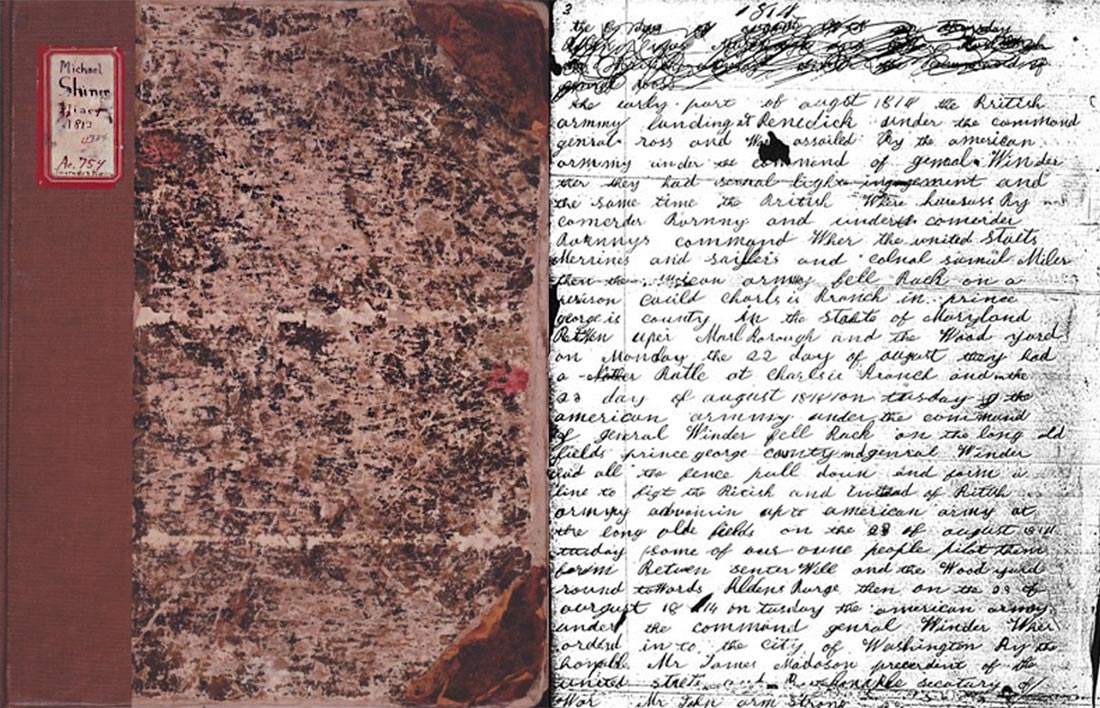 Michael
Shiner
Diary
1813
No. 754
3
1814
the of august on thursday
the command of
genral ross
the early part of augst 1814 the British
armmy landing at Benedick under the command
genral ross and assailed By the american
armmy under the command of genral Winder
ther they had sevral light ingagement and
the same time the British Where haresass By
Comerder Barnny and under comerder
Barnnys command Wher the united Stalts
Merrines and sailers and colnal samul Miler
then the armmy fell Back on a
Caild Charls is Branch in prince
george is county in the Stalts of Maryland
Betwen uper Marlborough and the Wood yard
on Monday the 22 day of august they had
a Batle at Charls is Branch and in the
23 day of august 1814 on tusday the
american armmy under the command
of genral Winder fell Back on the long old
fields prince george county md genral Winder
had all the fence pull down and form a
line to figt the Bitish and Instead of Bitish
armmy advancin up to american army at
the long olde fields on the 23 of august 1814
tusday some of our oune people pilot them
Betwen senter Will and the Wood yard
round towards then on the 23 of
august 18 14 on tusday the american armmy
under the command genral Winder Wher
orderd in to the City of Washington By the
honble Mr James Madoson precerdent of the
united stats and secatary of
War Mr John arm strong